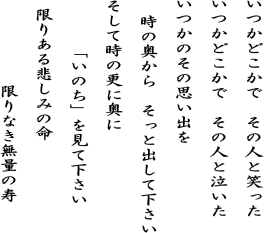 いつかどこかで　その人と笑った
いつかどこかで　その人と泣いた
いつかのその思い出を
時の奥から　そっと出して下さい
そして時の更に奥に
「いのち」を見て下さい
限りある悲しみの命
限りなき無量の寿